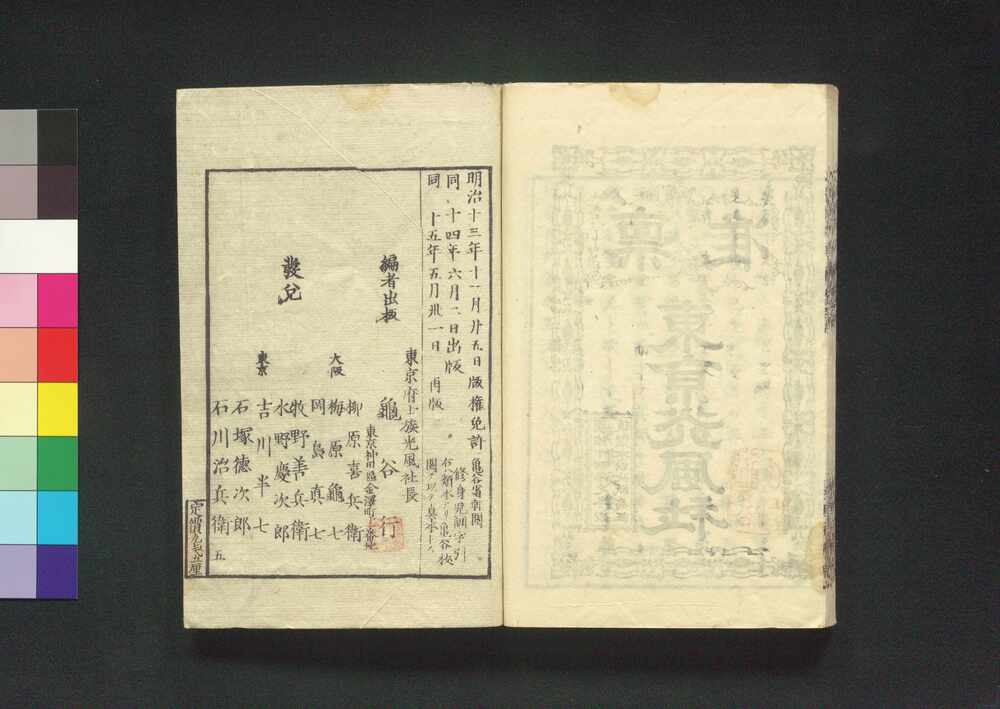 明治十三年十一月廿五日版權免許
同　十四年六月二日出版
同　十五年五月卅一日　再版
龜谷省軒閲
修身児訓字引
右ハ類本アリ龜谷校
閲アルヲ真本トス
編者出板
東京府士族光風社長
龜谷行
東京神田區金澤町
番地
發兌
大阪
柳原喜兵衛
梅原龜七
岡島真七
牧野善兵衛
水野慶次郎
東京
吉川半七
石塚德次郎
石川治兵衛
五